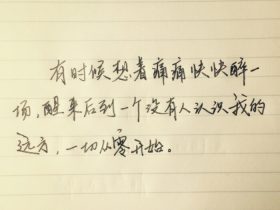 有时候想着痛痛快快醉一
场,醒来后到一个没有人认识我的
远方,一切从零开始。